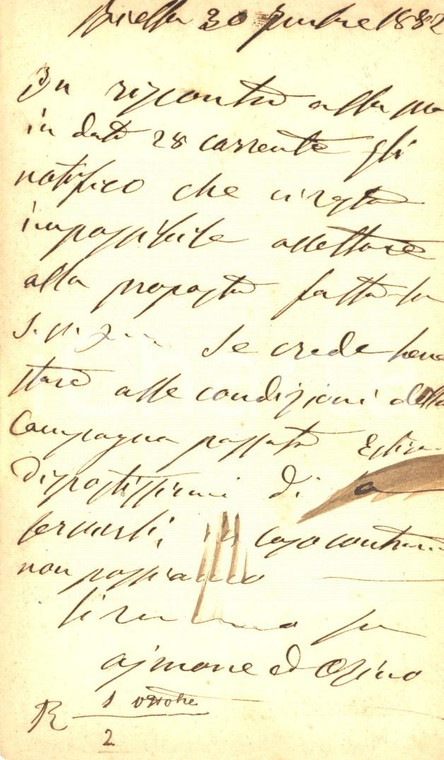 Biella 30 9mbre 1882
In riscontro alla
in data 28 corrente gli
notifico che ci resta
impossibile accettare
alla proposta fatta
Se crede bene
stare alle condizioni della
Campagna passata
Dispostissimi di a
servirli, in caso contrario
non possiamo

ajmone ed Ozino
R 1 ottobre
2